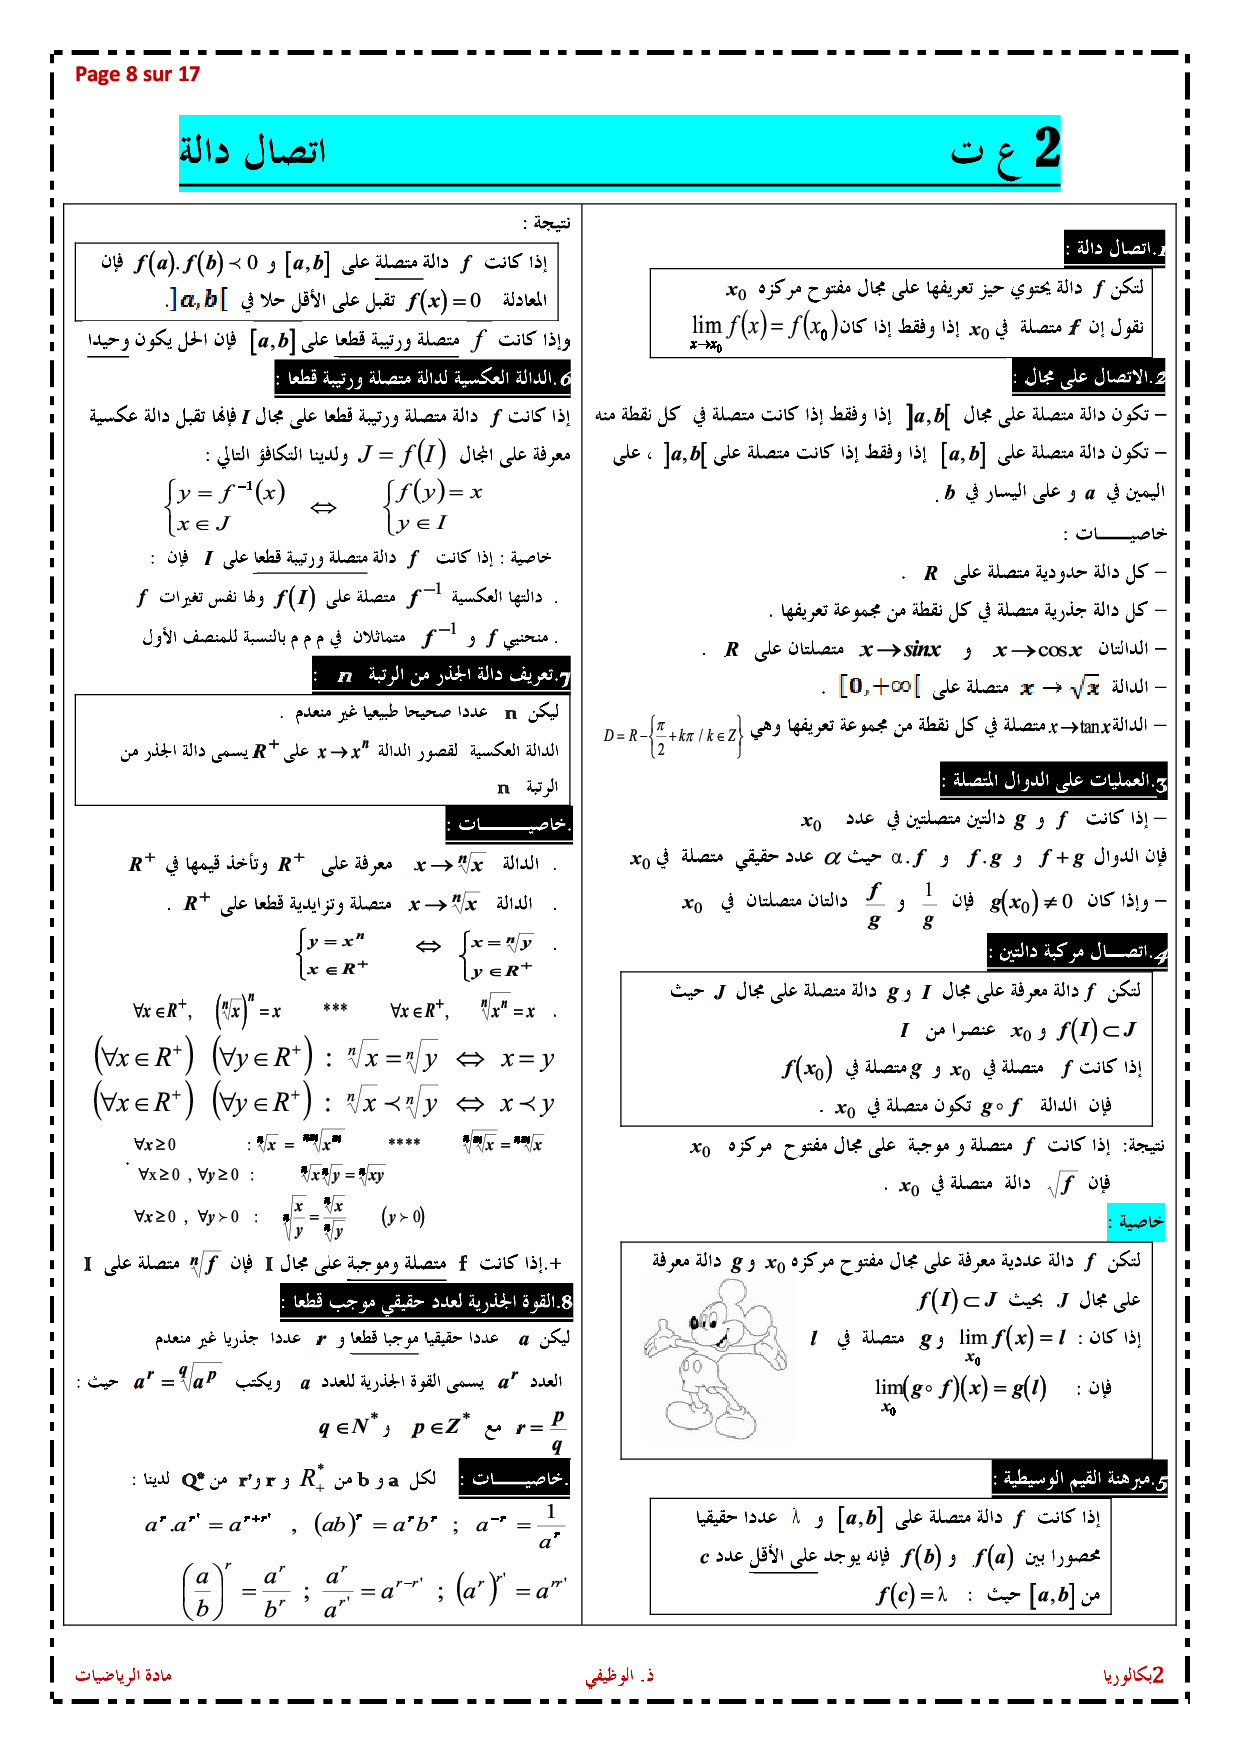 Page 8 sur 17
2 ع ت اتصال دالة
1.اتصال دالة :
لتكن f دالة يحتوي حيز تعريفها على مجال مفتوح مركزه x₀
نقول إن f متصلة في x₀ إذا وفقط إذا كان lim_{x→x₀} f(x) = f(x₀)
2.الاتصال على مجال :
– تكون دالة متصلة على مجال ]a,b[ إذا وفقط إذا كانت متصلة في كل نقطة منه
– تكون دالة متصلة على [a,b] إذا وفقط إذا كانت متصلة على ]a,b[ ، على
اليمين في a و على اليسار في b .
خاصيـــــات :
– كل دالة حدودية متصلة على R .
– كل دالة جذرية متصلة في كل نقطة من مجموعة تعريفها .
– الدالتان x→cos x و x→sinx متصلتان على R .
– الدالة x→√x متصلة على [0,+∞[ .
– الدالة x→tan x متصلة في كل نقطة من مجموعة تعريفها وهي D = R − {π/2 + kπ / k ∈ Z}
3.العمليات على الدوال المتصلة :
– إذا كانت f و g دالتين متصلتين في عدد x₀
فإن الدوال f+g و f.g و α.f حيث α عدد حقيقي متصلة في x₀
– وإذا كان g(x₀) ≠ 0 فإن 1/g و f/g دالتان متصلتان في x₀
4.اتصـــال مركبة دالتين :
لتكن f دالة معرفة على مجال I و g دالة متصلة على مجال J حيث
f(I) ⊂ J و x₀ عنصرا من I
إذا كانت f متصلة في x₀ و g متصلة في f(x₀)
فإن الدالة g∘f تكون متصلة في x₀ .
نتيجة: إذا كانت f متصلة و موجبة على مجال مفتوح مركزه x₀
فإن √f دالة متصلة في x₀ .
خاصية :
لتكن f دالة عددية معرفة على مجال مفتوح مركزه x₀ و g دالة معرفة
على مجال J بحيث f(I) ⊂ J
إذا كان : lim_{x₀} f(x) = l و g متصلة في l
فإن : lim_{x₀} (g∘f)(x) = g(l)
5.مبرهنة القيم الوسيطية :
إذا كانت f دالة متصلة على [a,b] و λ عددا حقيقيا
محصورا بين f(a) و f(b) فإنه يوجد على الأقل عدد c
من [a,b] حيث : f(c) = λ
نتيجة :
إذا كانت f دالة متصلة على [a,b] و f(a).f(b) ≺ 0 فإن
المعادلة f(x) = 0 تقبل على الأقل حلا في ]a,b[.
وإذا كانت f متصلة ورتيبة قطعا على [a,b] فإن الحل يكون وحيدا
6.الدالة العكسية لدالة متصلة ورتيبة قطعا :
إذا كانت f دالة متصلة ورتيبة قطعا على مجال I فإنها تقبل دالة عكسية
معرفة على المجال J = f(I) ولدينا التكافؤ التالي :
{y = f⁻¹(x) ; x ∈ J ⇔ {f(y) = x ; y ∈ I
خاصية : إذا كانت f دالة متصلة ورتيبة قطعا على I فإن :
. دالتها العكسية f⁻¹ متصلة على f(I) ولها نفس تغيرات f
. منحنيي f و f⁻¹ متماثلان في م م م بالنسبة للمنصف الأول
7.تعريف دالة الجذر من الرتبة n :
ليكن n عددا صحيحا طبيعيا غير منعدم .
الدالة العكسية لقصور الدالة x→xⁿ على R⁺ يسمى دالة الجذر من
الرتبة n
.خاصيـــــــات :
. الدالة x→ⁿ√x معرفة على R⁺ وتأخذ قيمها في R⁺
. الدالة x→ⁿ√x متصلة وتزايدية قطعا على R⁺ .
{y = xⁿ ; x ∈ R⁺ ⇔ {x = ⁿ√y ; y ∈ R⁺ .
∀x ∈ R⁺, (ⁿ√x)ⁿ = x *** ∀x ∈ R⁺, ⁿ√xⁿ = x .
(∀x ∈ R⁺) (∀y ∈ R⁺) : ⁿ√x = ⁿ√y ⇔ x = y
(∀x ∈ R⁺) (∀y ∈ R⁺) : ⁿ√x ≺ ⁿ√y ⇔ x ≺ y
∀x ≥ 0 : ⁿ√x = ⁿᵐ√xᵐ **** ⁿ√ᵐ√x = ⁿᵐ√x
∀x ≥ 0 , ∀y ≥ 0 : ⁿ√x ⁿ√y = ⁿ√xy
∀x ≥ 0 , ∀y ≻ 0 : ⁿ√(x/y) = ⁿ√x/ⁿ√y (y ≻ 0)
+.إذا كانت f متصلة وموجبة على مجال I فإن ⁿ√f متصلة على I
8.القوة الجذرية لعدد حقيقي موجب قطعا :
ليكن a عددا حقيقيا موجبا قطعا و r عددا جذريا غير منعدم
العدد aʳ يسمى القوة الجذرية للعدد a ويكتب aʳ = ᑫ√aᵖ حيث :
r = p/q مع p ∈ Z* و q ∈ N*
.خاصيـــــات : لكل a و b من R₊* و r و r' من Q* لدينا :
aʳ.aʳ' = aʳ⁺ʳ' , (ab)ʳ = aʳbʳ ; a⁻ʳ = 1/aʳ
(a/b)ʳ = aʳ/bʳ ; aʳ/aʳ' = aʳ⁻ʳ' ; (aʳ)ʳ' = aʳʳ'
2بكالوريا ذ. الوظيفي مادة الرياضيات